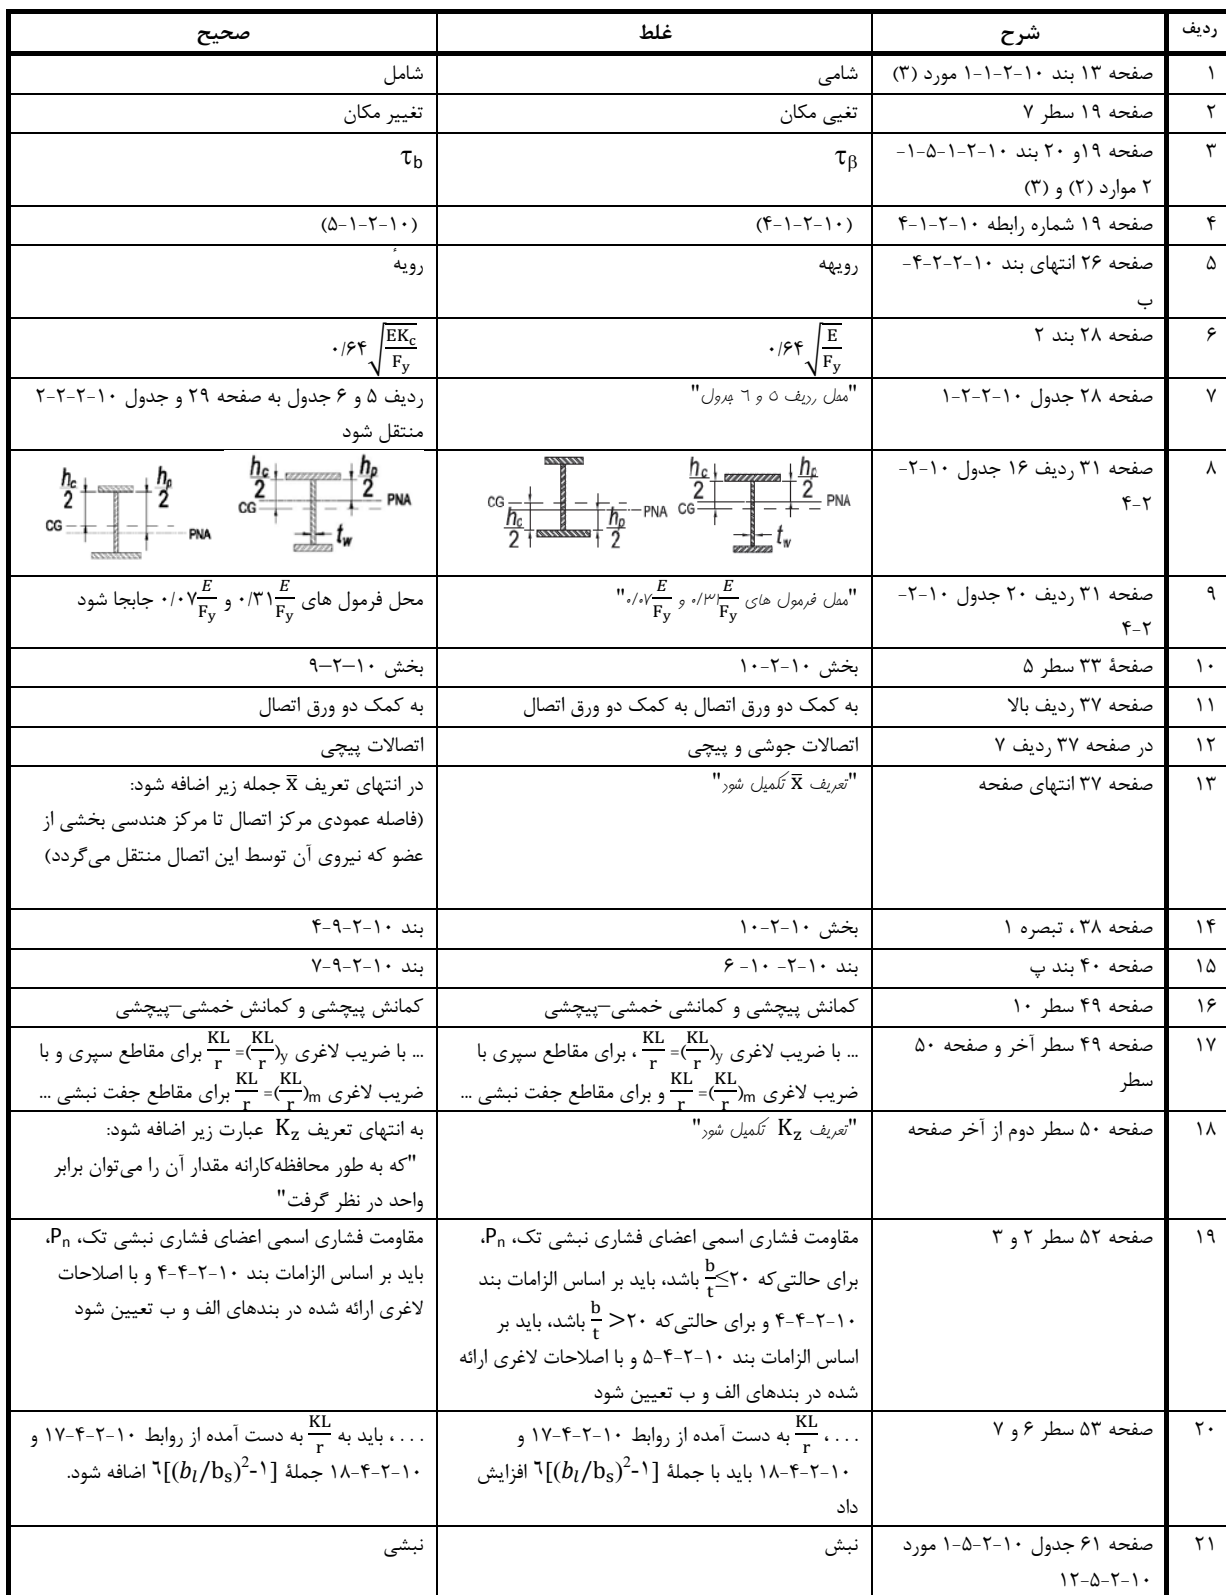 ردیف شرح غلط صحیح
۱ صفحه ۱۳ بند ۱۰-۲-۱-۱ مورد (۳) شامی شامل
۲ صفحه ۱۹ سطر ۷ تغیی مکان تغییر مکان
۳ صفحه ۱۹و ۲۰ بند ۱۰-۲-۱-۵-۱- τβ τb
۲ موارد (۲) و (۳)
۴ صفحه ۱۹ شماره رابطه ۱۰-۲-۱-۴ (۱۰-۲-۱-۴) (۱۰-۲-۱-۵)
۵ صفحه ۲۶ انتهای بند ۱۰-۲-۲-۴- رویهه رویهٔ
ب
۶ صفحه ۲۸ بند ۲ ۰/۶۴ √(E/Fy) ۰/۶۴ √(EKc/Fy)
۷ صفحه ۲۸ جدول ۱۰-۲-۲-۱ "محل ردیف ۵ و ۶ جدول" ردیف ۵ و ۶ جدول به صفحه ۲۹ و جدول ۱۰-۲-۲-۲
منتقل شود
۸ صفحه ۳۱ ردیف ۱۶ جدول ۱۰-۲-
۲-۴
hc/2 hp/2 CG PNA tw
hc/2 hp/2 CG PNA
hc/2 hp/2 CG PNA tw
hc/2 hp/2 CG PNA
۹ صفحه ۳۱ ردیف ۲۰ جدول ۱۰-۲- "محل فرمول های ۰/۳۱ E/Fy و ۰/۰۷ E/Fy" محل فرمول های ۰/۳۱ E/Fy و ۰/۰۷ E/Fy جابجا شود
۲-۴
۱۰ صفحهٔ ۳۳ سطر ۵ بخش ۱۰-۲-۱۰ بخش ۱۰–۲–۹
۱۱ صفحه ۳۷ ردیف بالا به کمک دو ورق اتصال به کمک دو ورق اتصال به کمک دو ورق اتصال
۱۲ در صفحه ۳۷ ردیف ۷ اتصالات جوشی و پیچی اتصالات پیچی
۱۳ صفحه ۳۷ انتهای صفحه "تعریف x̅ تکمیل شود" در انتهای تعریف x̅ جمله زیر اضافه شود:
(فاصله عمودی مرکز اتصال تا مرکز هندسی بخشی از
عضو که نیروی آن توسط این اتصال منتقل می‌گردد)
۱۴ صفحه ۳۸ ، تبصره ۱ بخش ۱۰-۲-۱۰ بند ۱۰-۲-۹-۴
۱۵ صفحه ۴۰ بند پ بند ۱۰-۲- ۱۰- ۶ بند ۱۰-۲-۹-۷
۱۶ صفحه ۴۹ سطر ۱۰ کمانش پیچشی و کمانشی خمشی–پیچشی کمانش پیچشی و کمانش خمشی–پیچشی
۱۷ صفحه ۴۹ سطر آخر و صفحه ۵۰ ... با ضریب لاغری KL/r =(KL/r)y ، برای مقاطع سپری با ... با ضریب لاغری KL/r =(KL/r)y برای مقاطع سپری و با
سطر ضریب لاغری KL/r =(KL/r)m و برای مقاطع جفت نبشی ... ضریب لاغری KL/r =(KL/r)m برای مقاطع جفت نبشی ...
۱۸ صفحه ۵۰ سطر دوم از آخر صفحه "تعریف Kz تکمیل شود" به انتهای تعریف Kz عبارت زیر اضافه شود:
"که به طور محافظه‌کارانه مقدار آن را می‌توان برابر
واحد در نظر گرفت"
۱۹ صفحه ۵۲ سطر ۲ و ۳ مقاومت فشاری اسمی اعضای فشاری نبشی تک، Pn، مقاومت فشاری اسمی اعضای فشاری نبشی تک، Pn،
برای حالتی‌که b/t≤۲۰ باشد، باید بر اساس الزامات بند باید بر اساس الزامات بند ۱۰-۲-۴-۴ و با اصلاحات
۱۰-۲-۴-۴ و برای حالتی‌که b/t >۲۰ باشد، باید بر لاغری ارائه شده در بندهای الف و ب تعیین شود
اساس الزامات بند ۱۰-۲-۴-۵ و با اصلاحات لاغری ارائه
شده در بندهای الف و ب تعیین شود
۲۰ صفحه ۵۳ سطر ۶ و ۷ . . . ، KL/r به دست آمده از روابط ۱۰-۲-۴-۱۷ و . . . ، باید به KL/r به دست آمده از روابط ۱۰-۲-۴-۱۷ و
۱۰-۲-۴-۱۸ باید با جملهٔ ۶[(bl/bs)²-۱] افزایش ۱۰-۲-۴-۱۸ جملهٔ ۶[(bl/bs)²-۱] اضافه شود.
داد
۲۱ صفحه ۶۱ جدول ۱۰-۲-۵-۱ مورد نبش نبشی
۱۰-۲-۵-۱۲